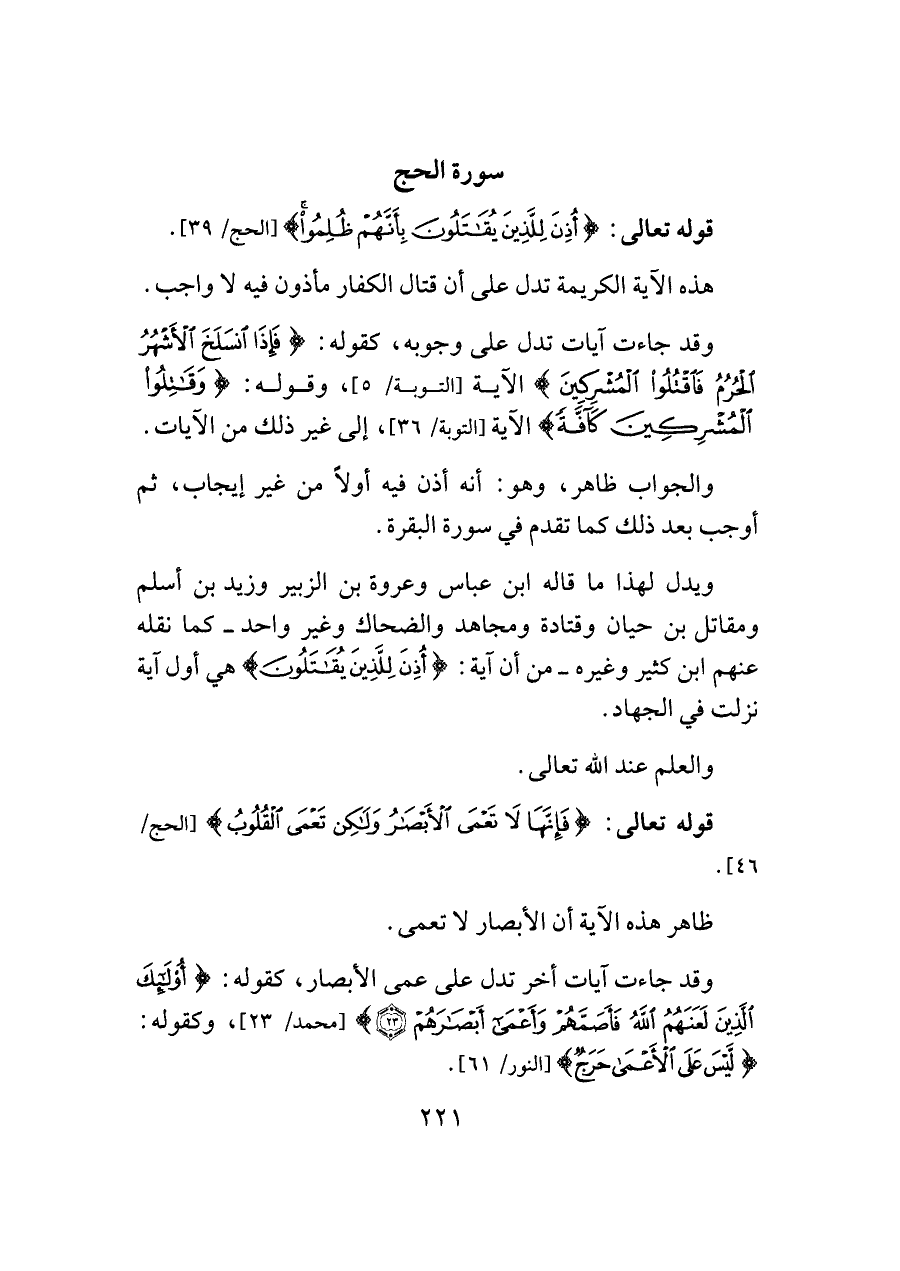 سورة الحج
قوله تعالى: ﴿أُذِنَ لِلَّذِينَ يُقَٰتَلُونَ بِأَنَّهُمْ ظُلِمُواْۚ﴾ [الحج/ ٣٩].
هذه الآية الكريمة تدل على أن قتال الكفار مأذون فيه لا واجب.
وقد جاءت آيات تدل على وجوبه، كقوله: ﴿فَإِذَا ٱنسَلَخَ ٱلْأَشْهُرُ
ٱلْحُرُمُ فَٱقْتُلُواْ ٱلْمُشْرِكِينَ﴾ الآيـة [التـوبـة/ ٥]، وقـولـه: ﴿وَقَٰتِلُواْ
ٱلْمُشْرِكِينَ كَآفَّةً﴾ الآية [التوبة/ ٣٦]، إلى غير ذلك من الآيات.
والجواب ظاهر، وهو: أنه أذن فيه أولاً من غير إيجاب، ثم
أوجب بعد ذلك كما تقدم في سورة البقرة.
ويدل لهذا ما قاله ابن عباس وعروة بن الزبير وزيد بن أسلم
ومقاتل بن حيان وقتادة ومجاهد والضحاك وغير واحد ـ كما نقله
عنهم ابن كثير وغيره ـ من أن آية: ﴿أُذِنَ لِلَّذِينَ يُقَٰتَلُونَ﴾ هي أول آية
نزلت في الجهاد.
والعلم عند الله تعالى.
قوله تعالى: ﴿فَإِنَّهَا لَا تَعْمَى ٱلْأَبْصَٰرُ وَلَٰكِن تَعْمَى ٱلْقُلُوبُ﴾ [الحج/
٤٦].
ظاهر هذه الآية أن الأبصار لا تعمى.
وقد جاءت آيات أخر تدل على عمى الأبصار، كقوله: ﴿أُوْلَٰٓئِكَ
ٱلَّذِينَ لَعَنَهُمُ ٱللَّهُ فَأَصَمَّهُمْ وَأَعْمَىٰٓ أَبْصَٰرَهُمْ ٢٣﴾ [محمد/ ٢٣]، وكقوله:
﴿لَّيْسَ عَلَى ٱلْأَعْمَىٰ حَرَجٌ﴾ [النور/ ٦١].
٢٢١